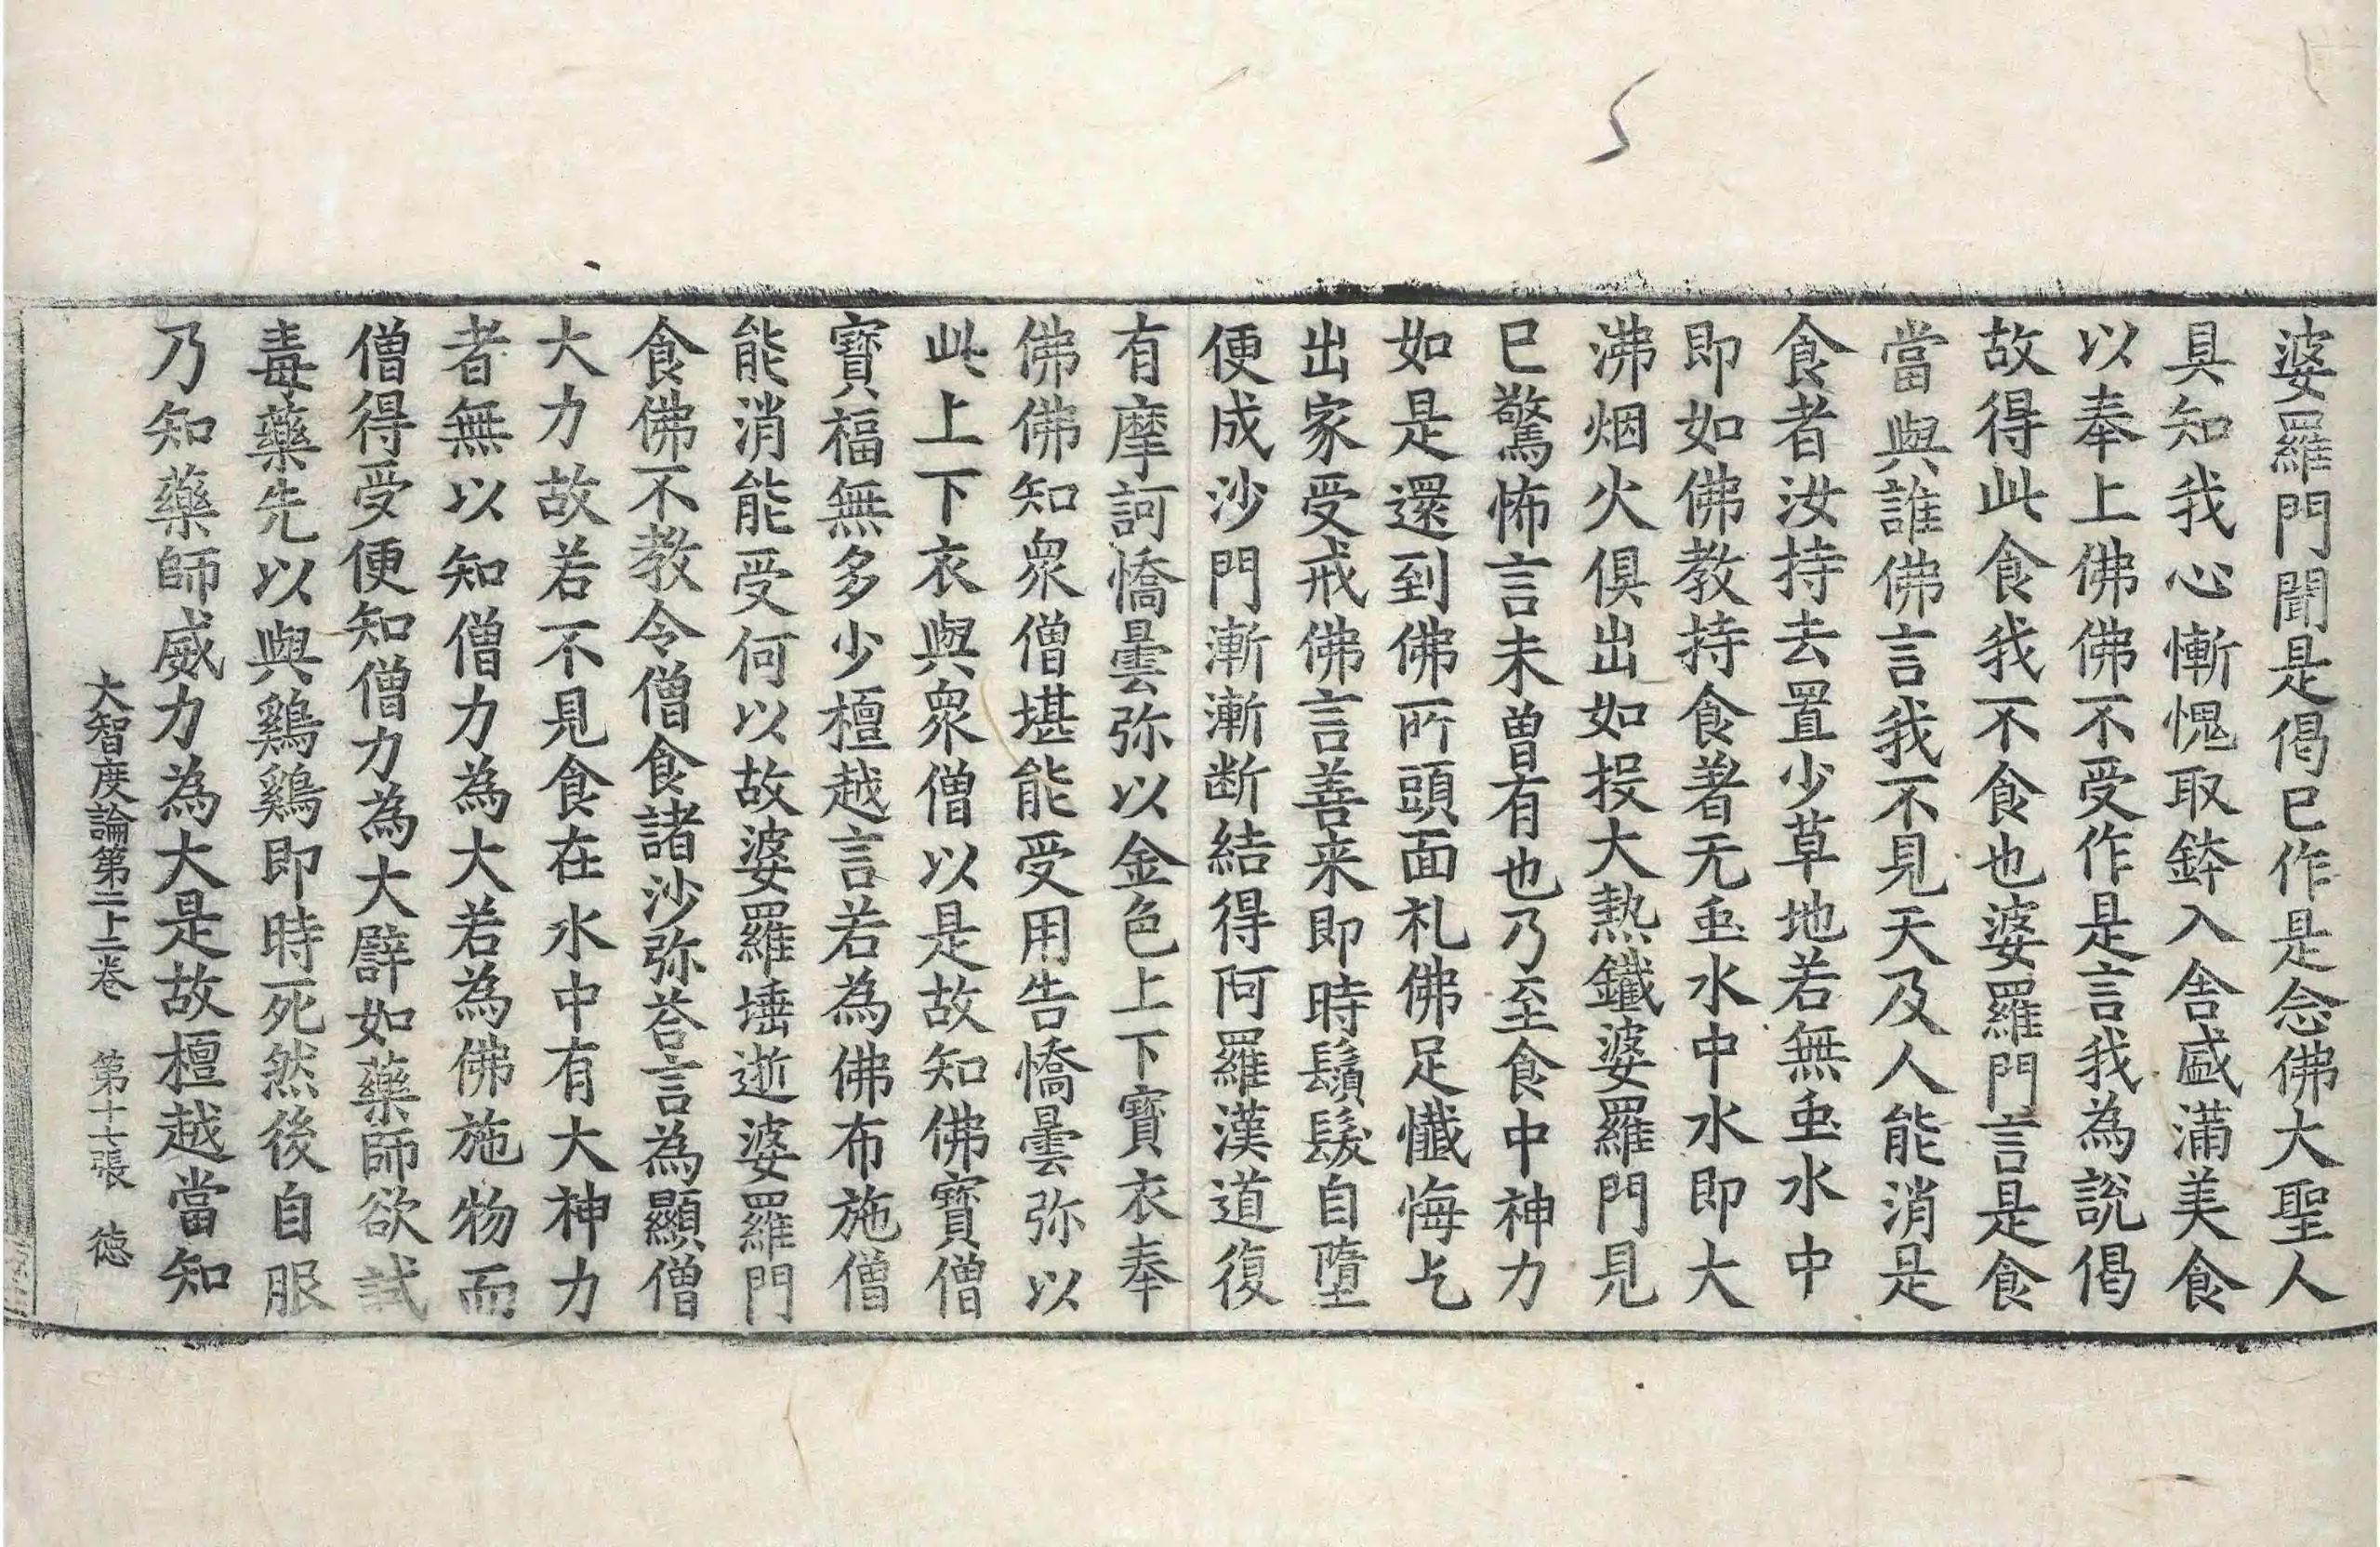 婆羅門聞是偈已作是念佛大聖人
具知我心慚愧取鉢入舍盛滿美食
以奉上佛佛不受作是言我為說偈
故得此食我不食也婆羅門言是食
當與誰佛言我不見天及人能消是
食者汝持去置少草地若無虫水中
即如佛教持食著无虫水中水即大
沸烟火俱出如投大熱鐵婆羅門見
已驚怖言未曾有也乃至食中神力
如是還到佛所頭面礼佛足懺悔乞
出家受戒佛言善来即時鬚髮自墮
便成沙門漸漸断結得阿羅漢道復
有摩訶憍曇弥以金色上下寶衣奉
佛佛知衆僧堪能受用告憍曇弥以
此上下衣與衆僧以是故知佛寶僧
寶福無多少檀越言若為佛布施僧
能消能受何以故婆羅埵逝婆羅門
食佛不教令僧食諸沙弥荅言為顯僧
大力故若不見食在水中有大神力
者無以知僧力為大若為佛施物而
僧得受便知僧力為大辟如藥師欲試
毒藥先以與鷄鷄即時死然後自服
乃知藥師威力為大是故檀越當知
大智度論第二十二卷 第十七張 德